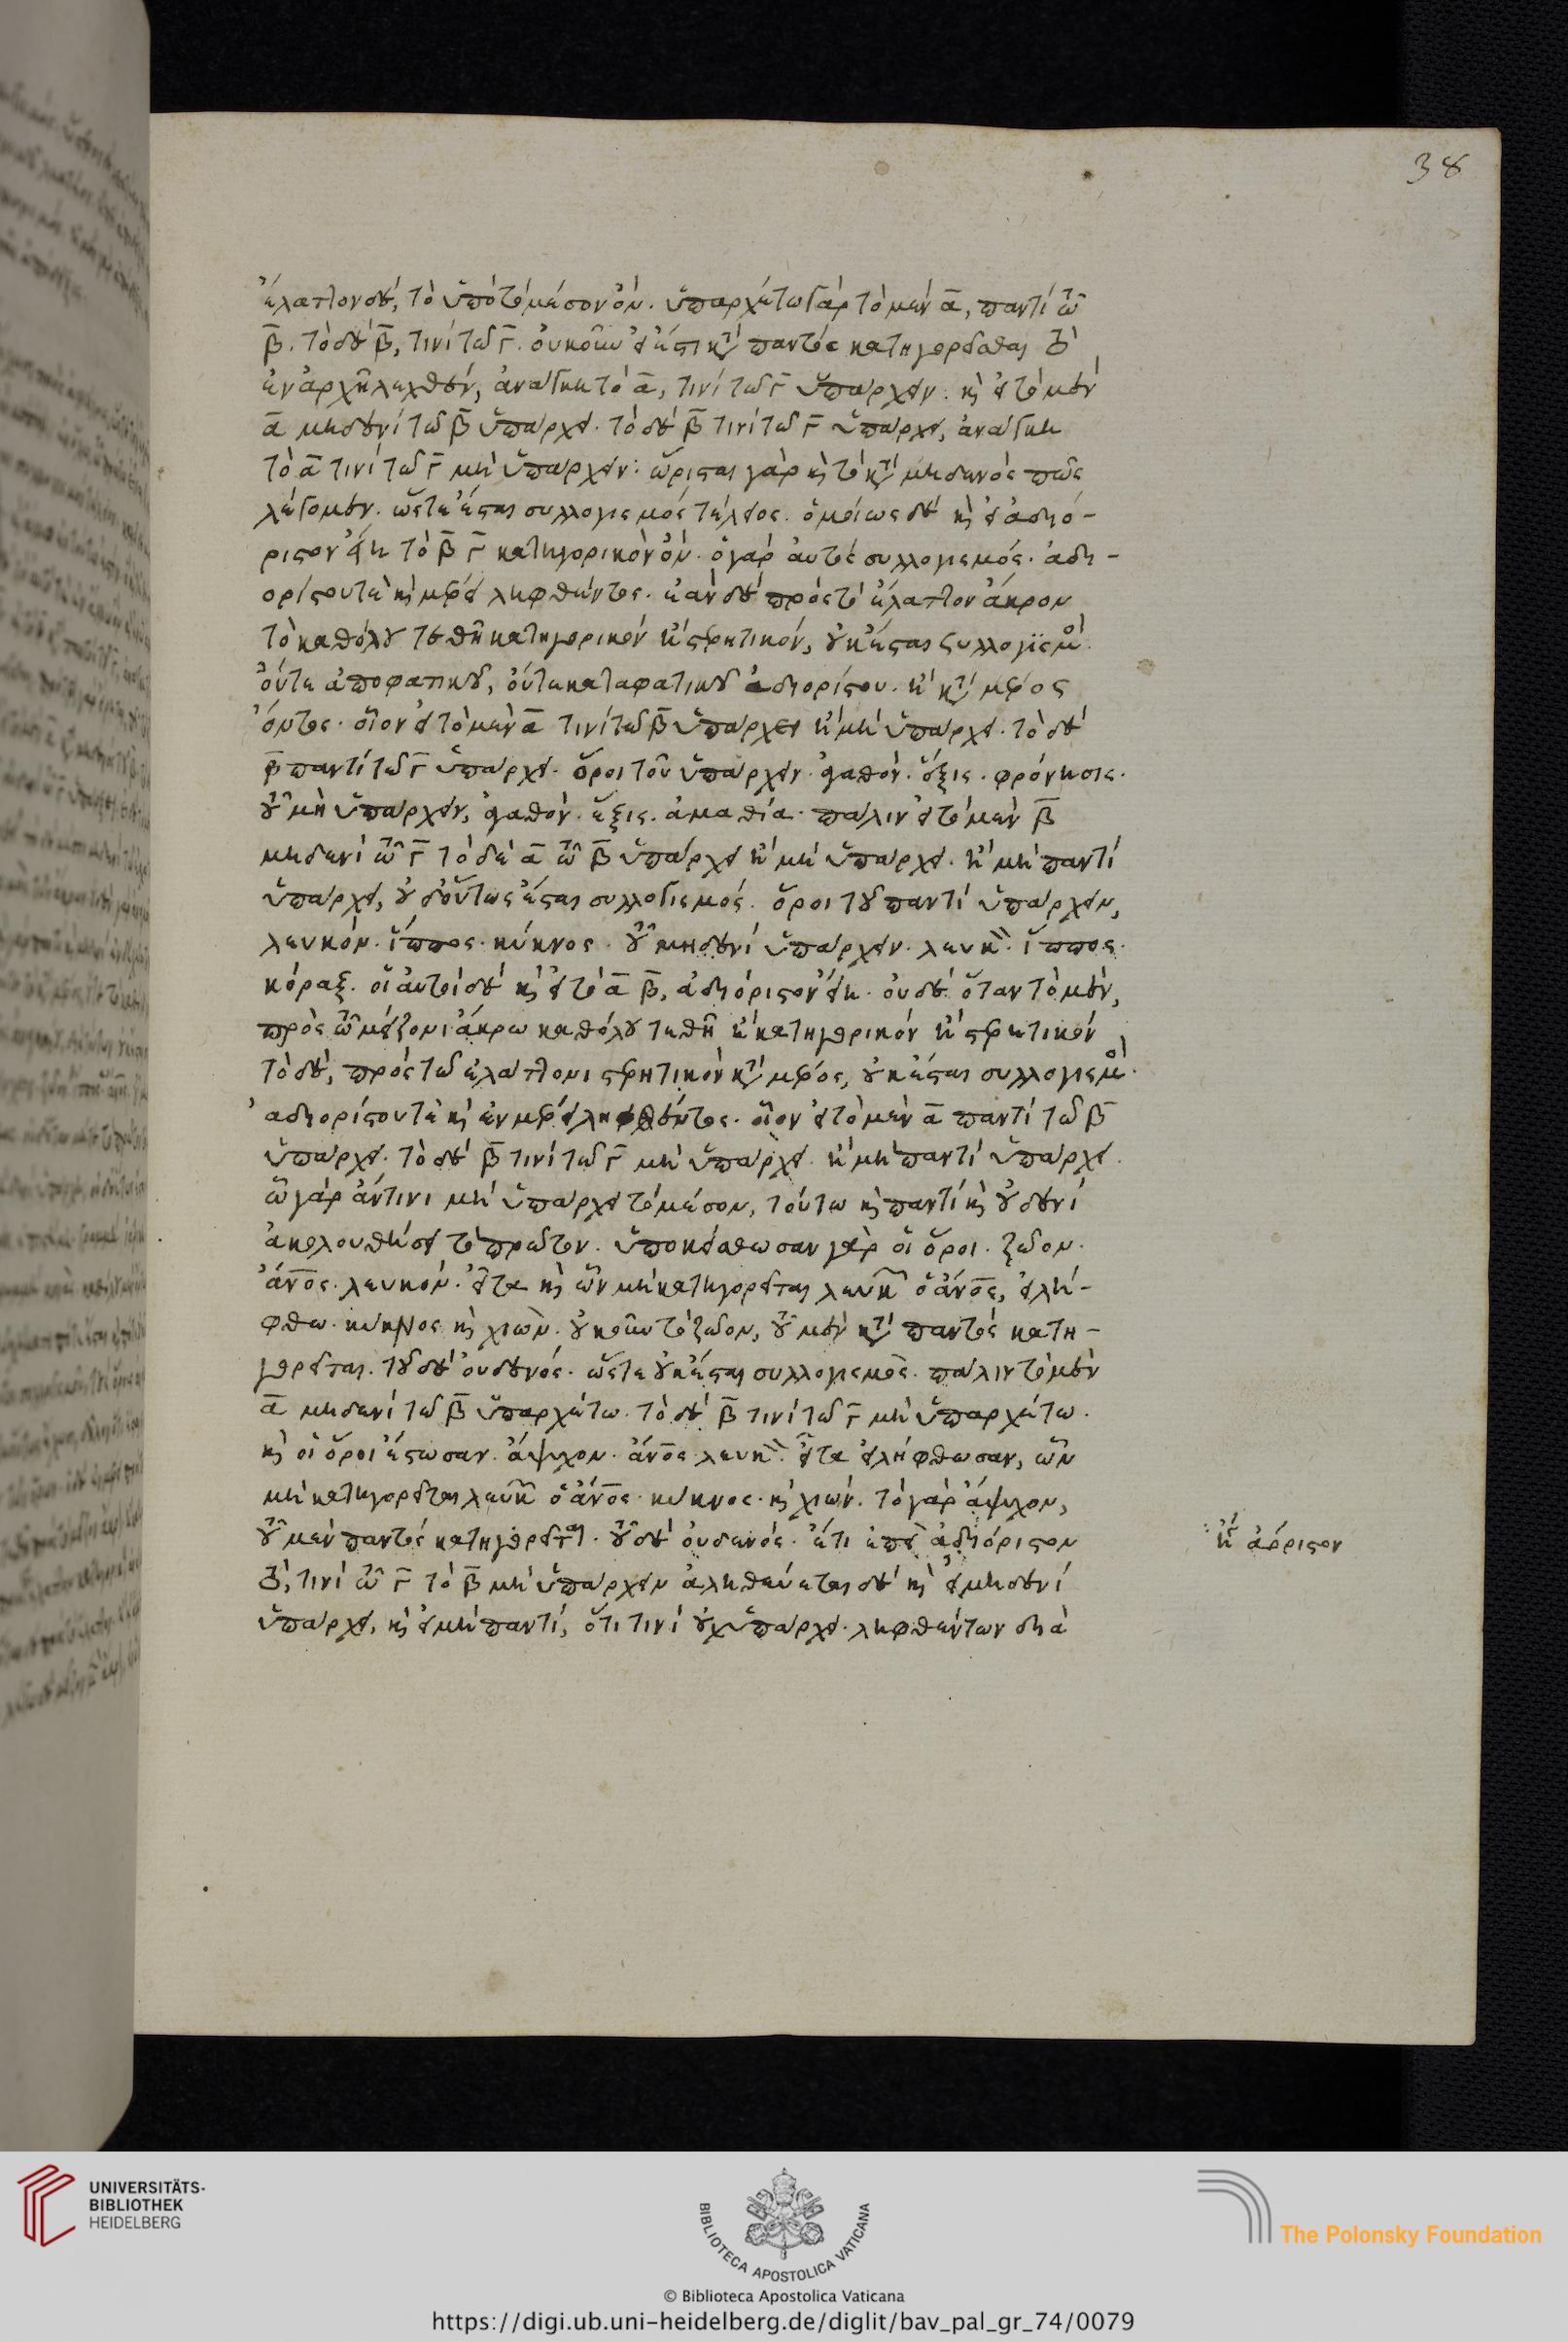 38
ἔλαττον δὲ, τὸ ὑπὸ τὸ μέσον ὄν. ὑπαρχέτω γὰρ τὸ μὲν α, παντὶ τῶ
β. τὸ δὲ β, τινὶ τῶ γ. οὐκοῦν εἰ ἔστι κατὰ παντὸς κατηγορεῖσθαι τὸ
ἐν ἀρχῇ λεχθὲν, ἀνάγκη τὸ α, τινὶ τῶ γ ὑπάρχειν. καὶ εἰ τὸ μὲν
α μηδενὶ τῶ β ὑπάρχει. τὸ δὲ β τινὶ τῶ γ ὑπάρχει, ἀνάγκη
τὸ α τινὶ τῶ γ μὴ ὑπάρχειν. ὥρισται γὰρ καὶ τὸ κατὰ μηδενὸς πῶς
λέγομεν. ὥστε ἔσται συλλογισμός τέλειος. ὁμοίως δὲ καὶ εἰ ἀδιό-
ριστον εἴη τὸ β γ κατηγορικὸν ὄν. ὁ γὰρ αὐτὸς συλλογισμός. ἀδι-
ορίστου τὲ καὶ ἐν μέρει ληφθέντος. ἐὰν δὲ πρὸς τὸ ἔλαττον ἄκρον
τὸ καθόλου τεθῇ κατηγορικὸν ἢ στερητικόν, οὐκ ἔσται συλλογισμὸς.
οὔτε ἀποφατικοῦ, οὔτε καταφατικοῦ ἀδιορίστου. ἢ κατὰ μέρος
ὄντος. οἷον εἰ τὸ μὲν α τινὶ τῶ β ὑπάρχει ἢ μὴ ὑπάρχει. τὸ δὲ
β παντὶ τῶ γ ὑπάρχει. ὅροι τοῦ ὑπάρχειν. ἀγαθὸν. ἕξις. φρόνησις.
τοῦ μὴ ὑπάρχειν, ἀγαθὸν. ἕξις. ἀμαθία. πάλιν εἰ τὸ μὲν β
μηδενὶ τῶ γ τὸ δὲ α τῶ β ὑπάρχει ἢ μὴ ὑπάρχει. ἢ μὴ παντὶ
ὑπάρχει, οὐδ' οὕτως ἔσται συλλογισμός. ὅροι τοῦ παντὶ ὑπάρχειν,
λευκόν. ἵππος. κύκνος. τοῦ μηδενὶ ὑπάρχειν. λευκὸν. ἵππος.
κόραξ. οἱ αὐτοὶ δὲ καὶ εἰ τὸ α β, ἀδιόριστον εἴη. οὐδὲ ὅταν τὸ μὲν,
πρὸς τῶ μείζονι ἄκρω καθόλου τεθῇ ἢ κατηγορικόν ἢ στερητικόν
τὸ δὲ, πρὸς τῶ ἐλάττονι στερητικὸν κατὰ μέρος, οὐκ ἔσται συλλογισμὸς.
ἀδιορίστου τὲ καὶ ἐν μέρει ληφθέντος. οἷον εἰ τὸ μὲν α παντὶ τῶ β
ὑπάρχει. τὸ δὲ β τινὶ τῶ γ μὴ ὑπάρχει. ἢ μὴ παντὶ ὑπάρχει.
ὧ γὰρ ἄν τινι μὴ ὑπάρχει τὸ μέσον, τούτω καὶ παντὶ καὶ οὐδενὶ
ἀκολουθήσει τὸ πρῶτον. ὑποκείσθωσαν γὰρ οἱ ὅροι. ζῶον.
ἄνος. λευκόν. εἶτα καὶ ὧν μὴ κατηγορεῖται λευκῶν ὁ ἄνος, εἰλή-
φθω. κύκνος καὶ χιὼν. οὐκοῦν τὸ ζῶον, τοῦ μὲν κατὰ παντὸς κατη-
γορεῖται. τοῦ δὲ οὐδενός. ὥστε οὐκ ἔσται συλλογισμὸς. πάλιν τὸ μὲν
α μηδενὶ τῶ β ὑπαρχέτω. τὸ δὲ β τινὶ τῶ γ μὴ ὑπαρχέτω.
καὶ οἱ ὅροι ἔστωσαν. ἄψυχον. ἄνος λευκὸν. εἶτα εἰλήφθωσαν, ὧν
μὴ κατηγορεῖται λευκῶν ὁ ἄνος. κύκνος. καὶ χιών. τὸ γὰρ ἄψυχον,
τοῦ μὲν παντὸς κατηγορεῖται. τοῦ δὲ οὐδενός. ἔτι ἐπεὶ ἀδιόριστον
τὸ, τινὶ τῶ γ τὸ β μὴ ὑπάρχειν ἀληθεύεται δὲ καὶ εἰ μηδενὶ
ὑπάρχει, καὶ εἰ μὴ παντί, ὅτι τινὶ οὐχ ὑπάρχει. ληφθέντων δὴ
ἢ ἀόριστον
UNIVERSITÄTS-
BIBLIOTHEK
HEIDELBERG
BIBLIOTECA APOSTOLICA VATICANA
The Polonsky Foundation
© Biblioteca Apostolica Vaticana
https://digi.ub.uni-heidelberg.de/diglit/bav_pal_gr_74/0079